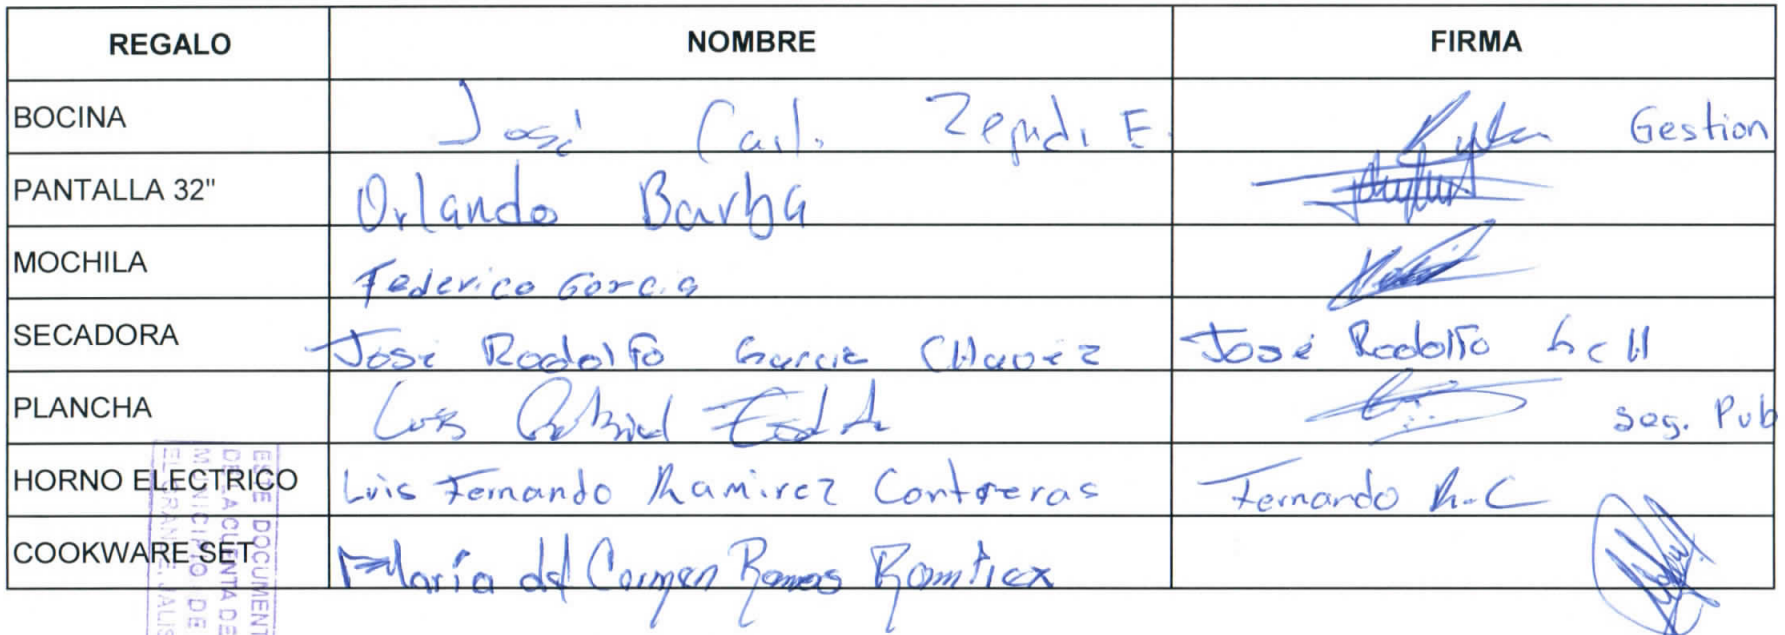 REGALO NOMBRE FIRMA
BOCINA José Carl. Zepd. E. Gestion
PANTALLA 32" Orlando Barba
MOCHILA Federico Garcia
SECADORA José Rodolfo Garcia CHavez José Rodolfo G c H
PLANCHA Luis Gabriel seg. Pub
HORNO ELECTRICO Luis Fernando Ramirez Contreras Fernando R.C
COOKWARE SET María del Carmen Ramos
ESTE DOCUMENT
DE LA CUENTA DE
MUNICIPIO DE
JALIS